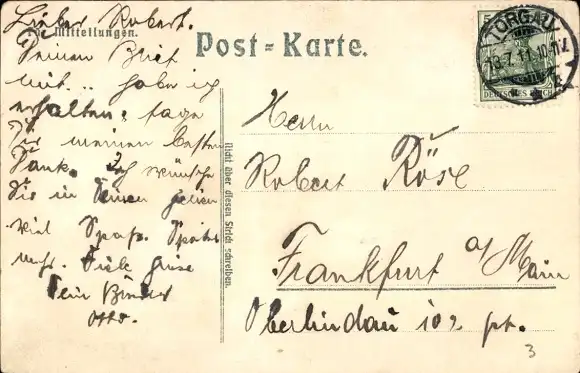 Lieber Robert.
Für Mitteilungen.
Deinen Brief
habe ich
erhalten, sage
Dir meinen besten
Dank. Ich wünsche
Dir in Deinen
viel Spaß. Später
mehr. Viele Grüse
Dein Bruder
Otto.
Post-Karte.
Nicht über diesen Strich schreiben.
5
TORGAU
18.7.11.10-11V.
DEUTSCHES REICH
Herrn
Robert Röse
Frankfurt a/Main
Oberlindau 102 pt.
3